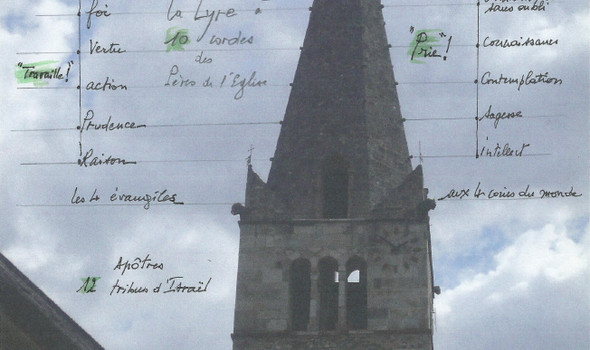 foi
la Lyre à
sans oubli
Vertu
10 cordes
"Prie"!
connaissance
"Travaille!"
des
action
Pères de l'Eglise
Contemplation
Prudence
sagesse
Raison
intellect
les 4 évangiles
aux 4 coins du monde
Apôtres
12
tribus d'Israël